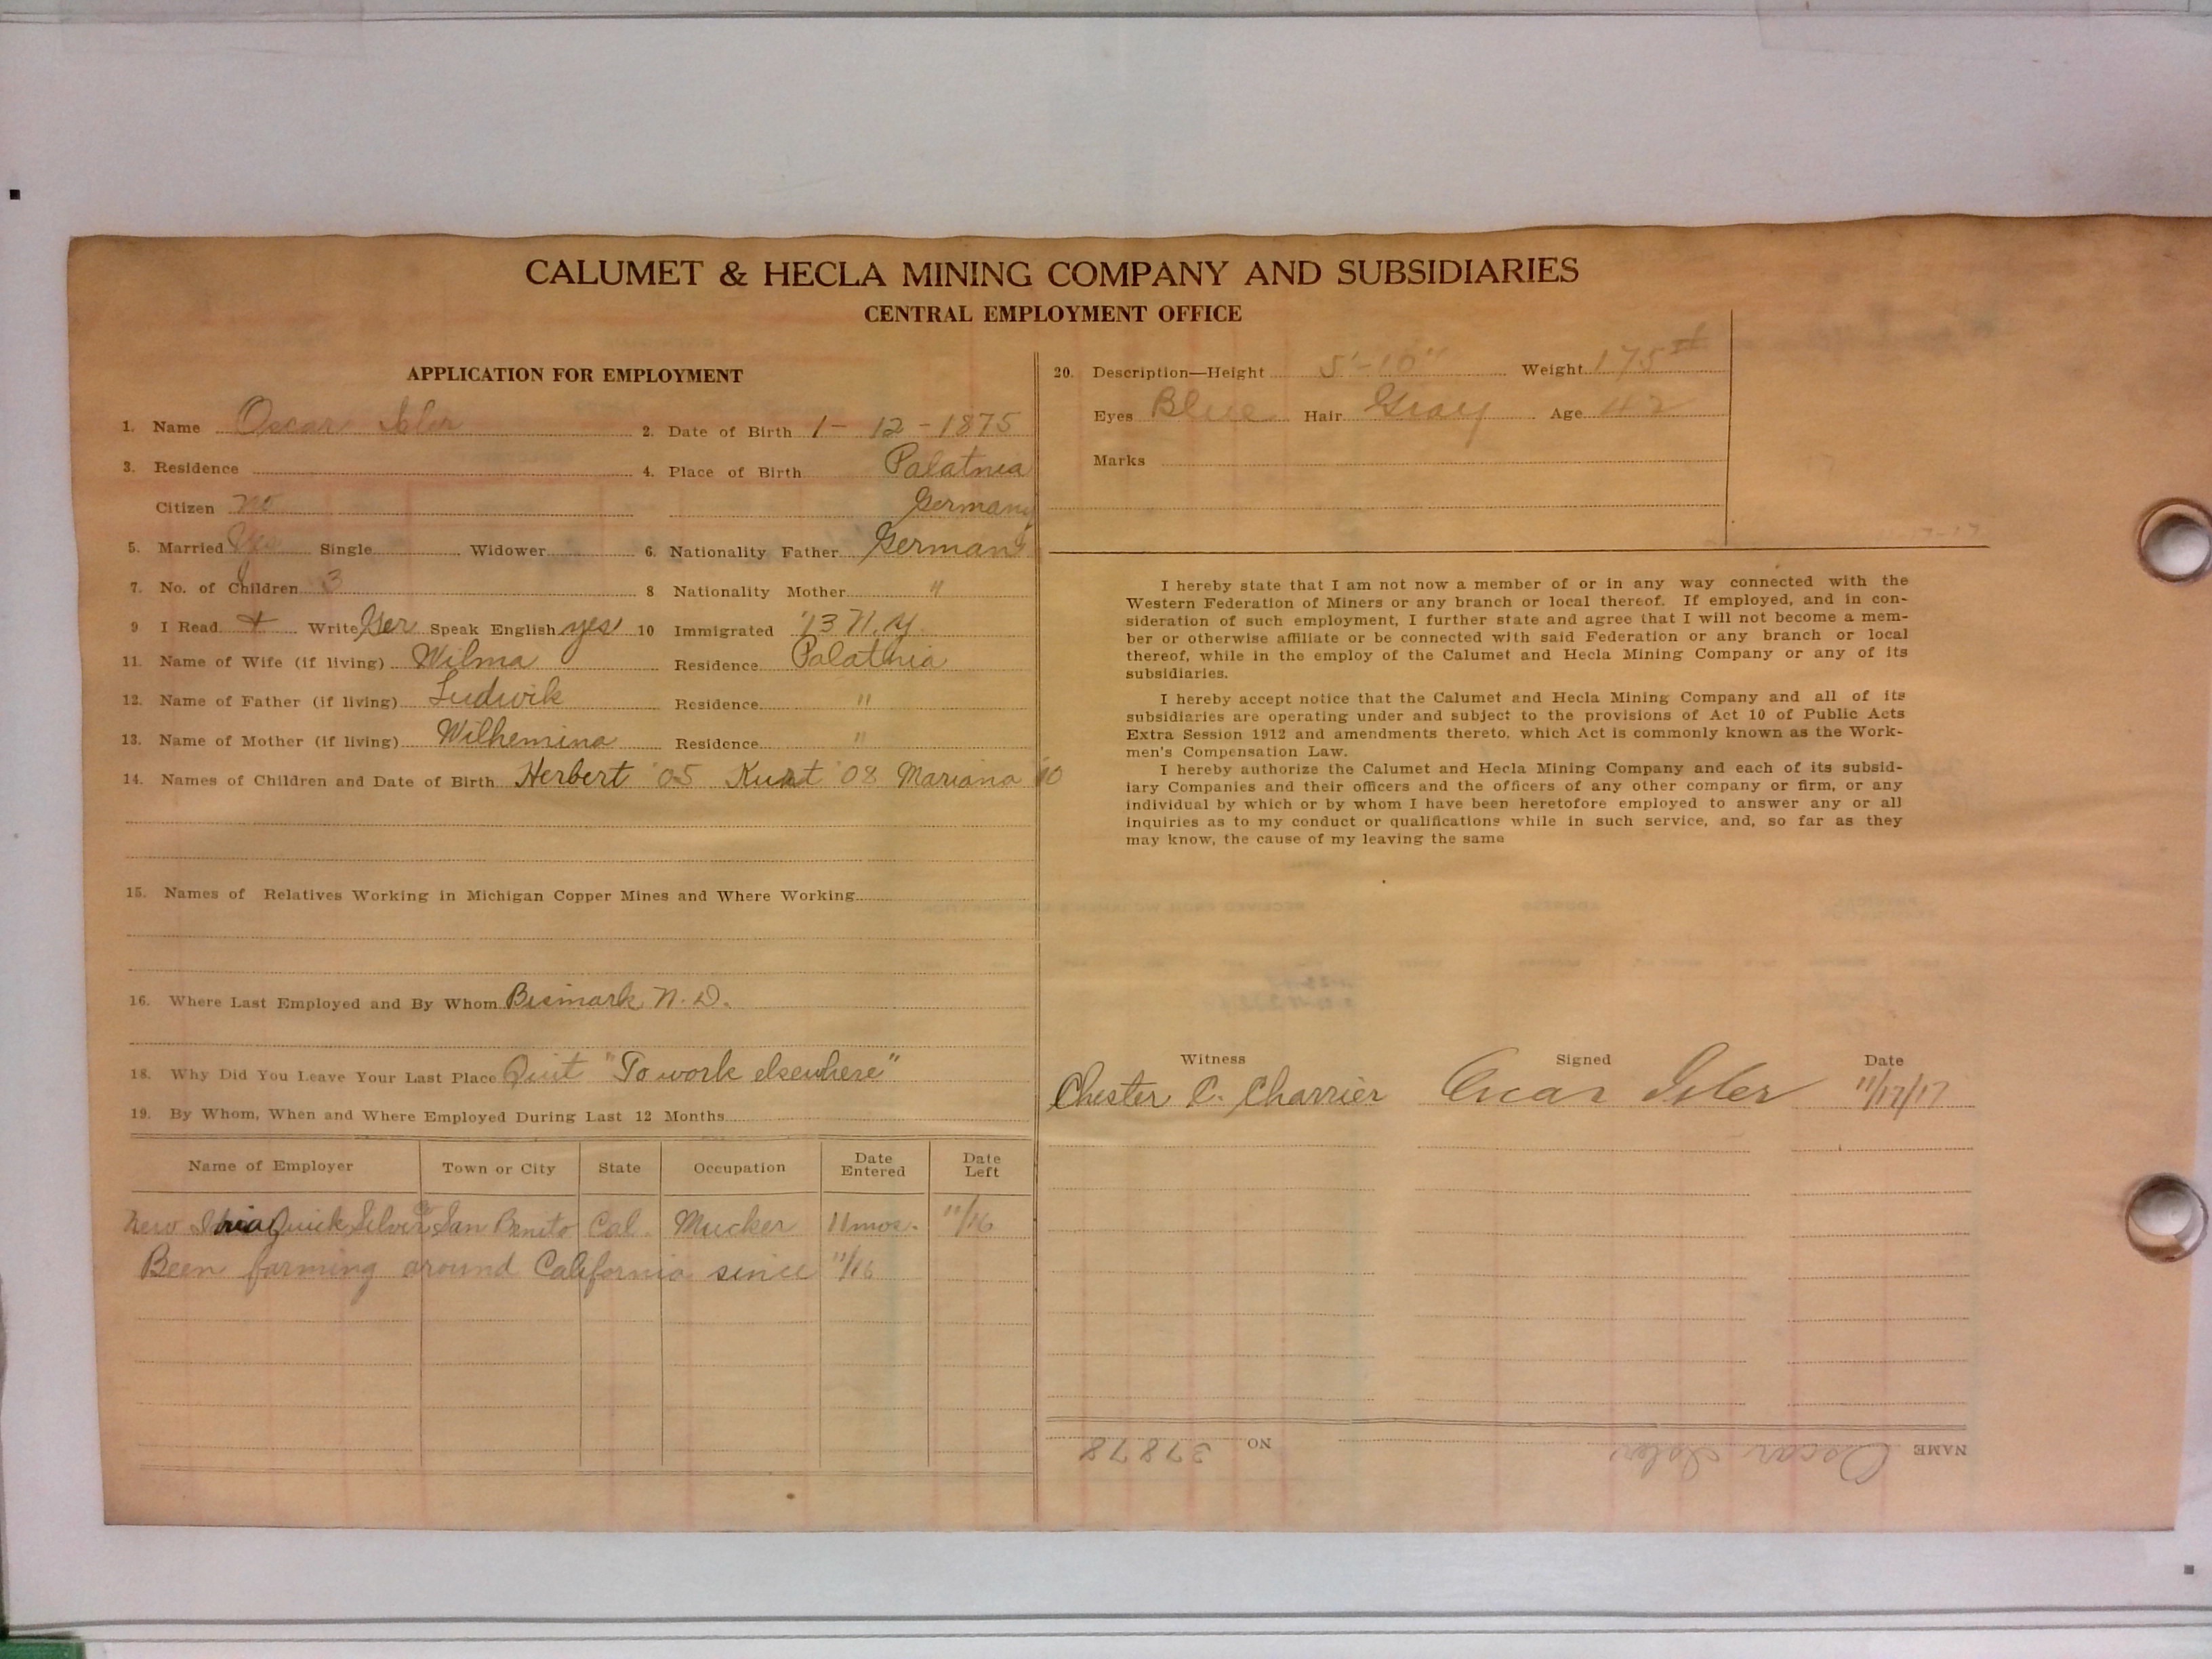 CALUMET & HECLA MINING COMPANY AND SUBSIDIARIES
CENTRAL EMPLOYMENT OFFICE
APPLICATION FOR EMPLOYMENT
1. Name Oscar Isler 2. Date of Birth 1-12-1875
3. Residence 4. Place of Birth Palatnia
Citizen no Germany
5. Married Yes Single Widower 6. Nationality Father German
7. No. of Children 3 8 Nationality Mother "
9 I Read + Write Ger Speak English yes 10 Immigrated '13 N.Y.
11. Name of Wife (if living) Wilma Residence Palatnia
12. Name of Father (if living) Ludwik Residence "
13. Name of Mother (if living) Wilhemina Residence "
14. Names of Children and Date of Birth Herbert '05 Kurt '08 Mariana '10
15. Names of Relatives Working in Michigan Copper Mines and Where Working
16. Where Last Employed and By Whom Bismark N.D.
18. Why Did You Leave Your Last Place Quit "To work elsewhere"
19. By Whom, When and Where Employed During Last 12 Months
Name of Employer Town or City State Occupation Date Entered Date Left
New Idria Quick Silver Co San Benito Cal. Mucker 11 mos. 11/16
Been farming around California since 11/16
20. Description—Height 5'-10" Weight 175
Eyes Blue Hair Gray Age 42
Marks
I hereby state that I am not now a member of or in any way connected with the
Western Federation of Miners or any branch or local thereof. If employed, and in con-
sideration of such employment, I further state and agree that I will not become a mem-
ber or otherwise affiliate or be connected with said Federation or any branch or local
thereof, while in the employ of the Calumet and Hecla Mining Company or any of its
subsidiaries.
I hereby accept notice that the Calumet and Hecla Mining Company and all of its
subsidiaries are operating under and subject to the provisions of Act 10 of Public Acts
Extra Session 1912 and amendments thereto, which Act is commonly known as the Work-
men's Compensation Law.
I hereby authorize the Calumet and Hecla Mining Company and each of its subsid-
iary Companies and their officers and the officers of any other company or firm, or any
individual by which or by whom I have been heretofore employed to answer any or all
inquiries as to my conduct or qualifications while in such service, and, so far as they
may know, the cause of my leaving the same
Witness Signed Date
Chester C. Charrier Oscar Isler 11/17/17
NAME Oscar Isler NO 37878